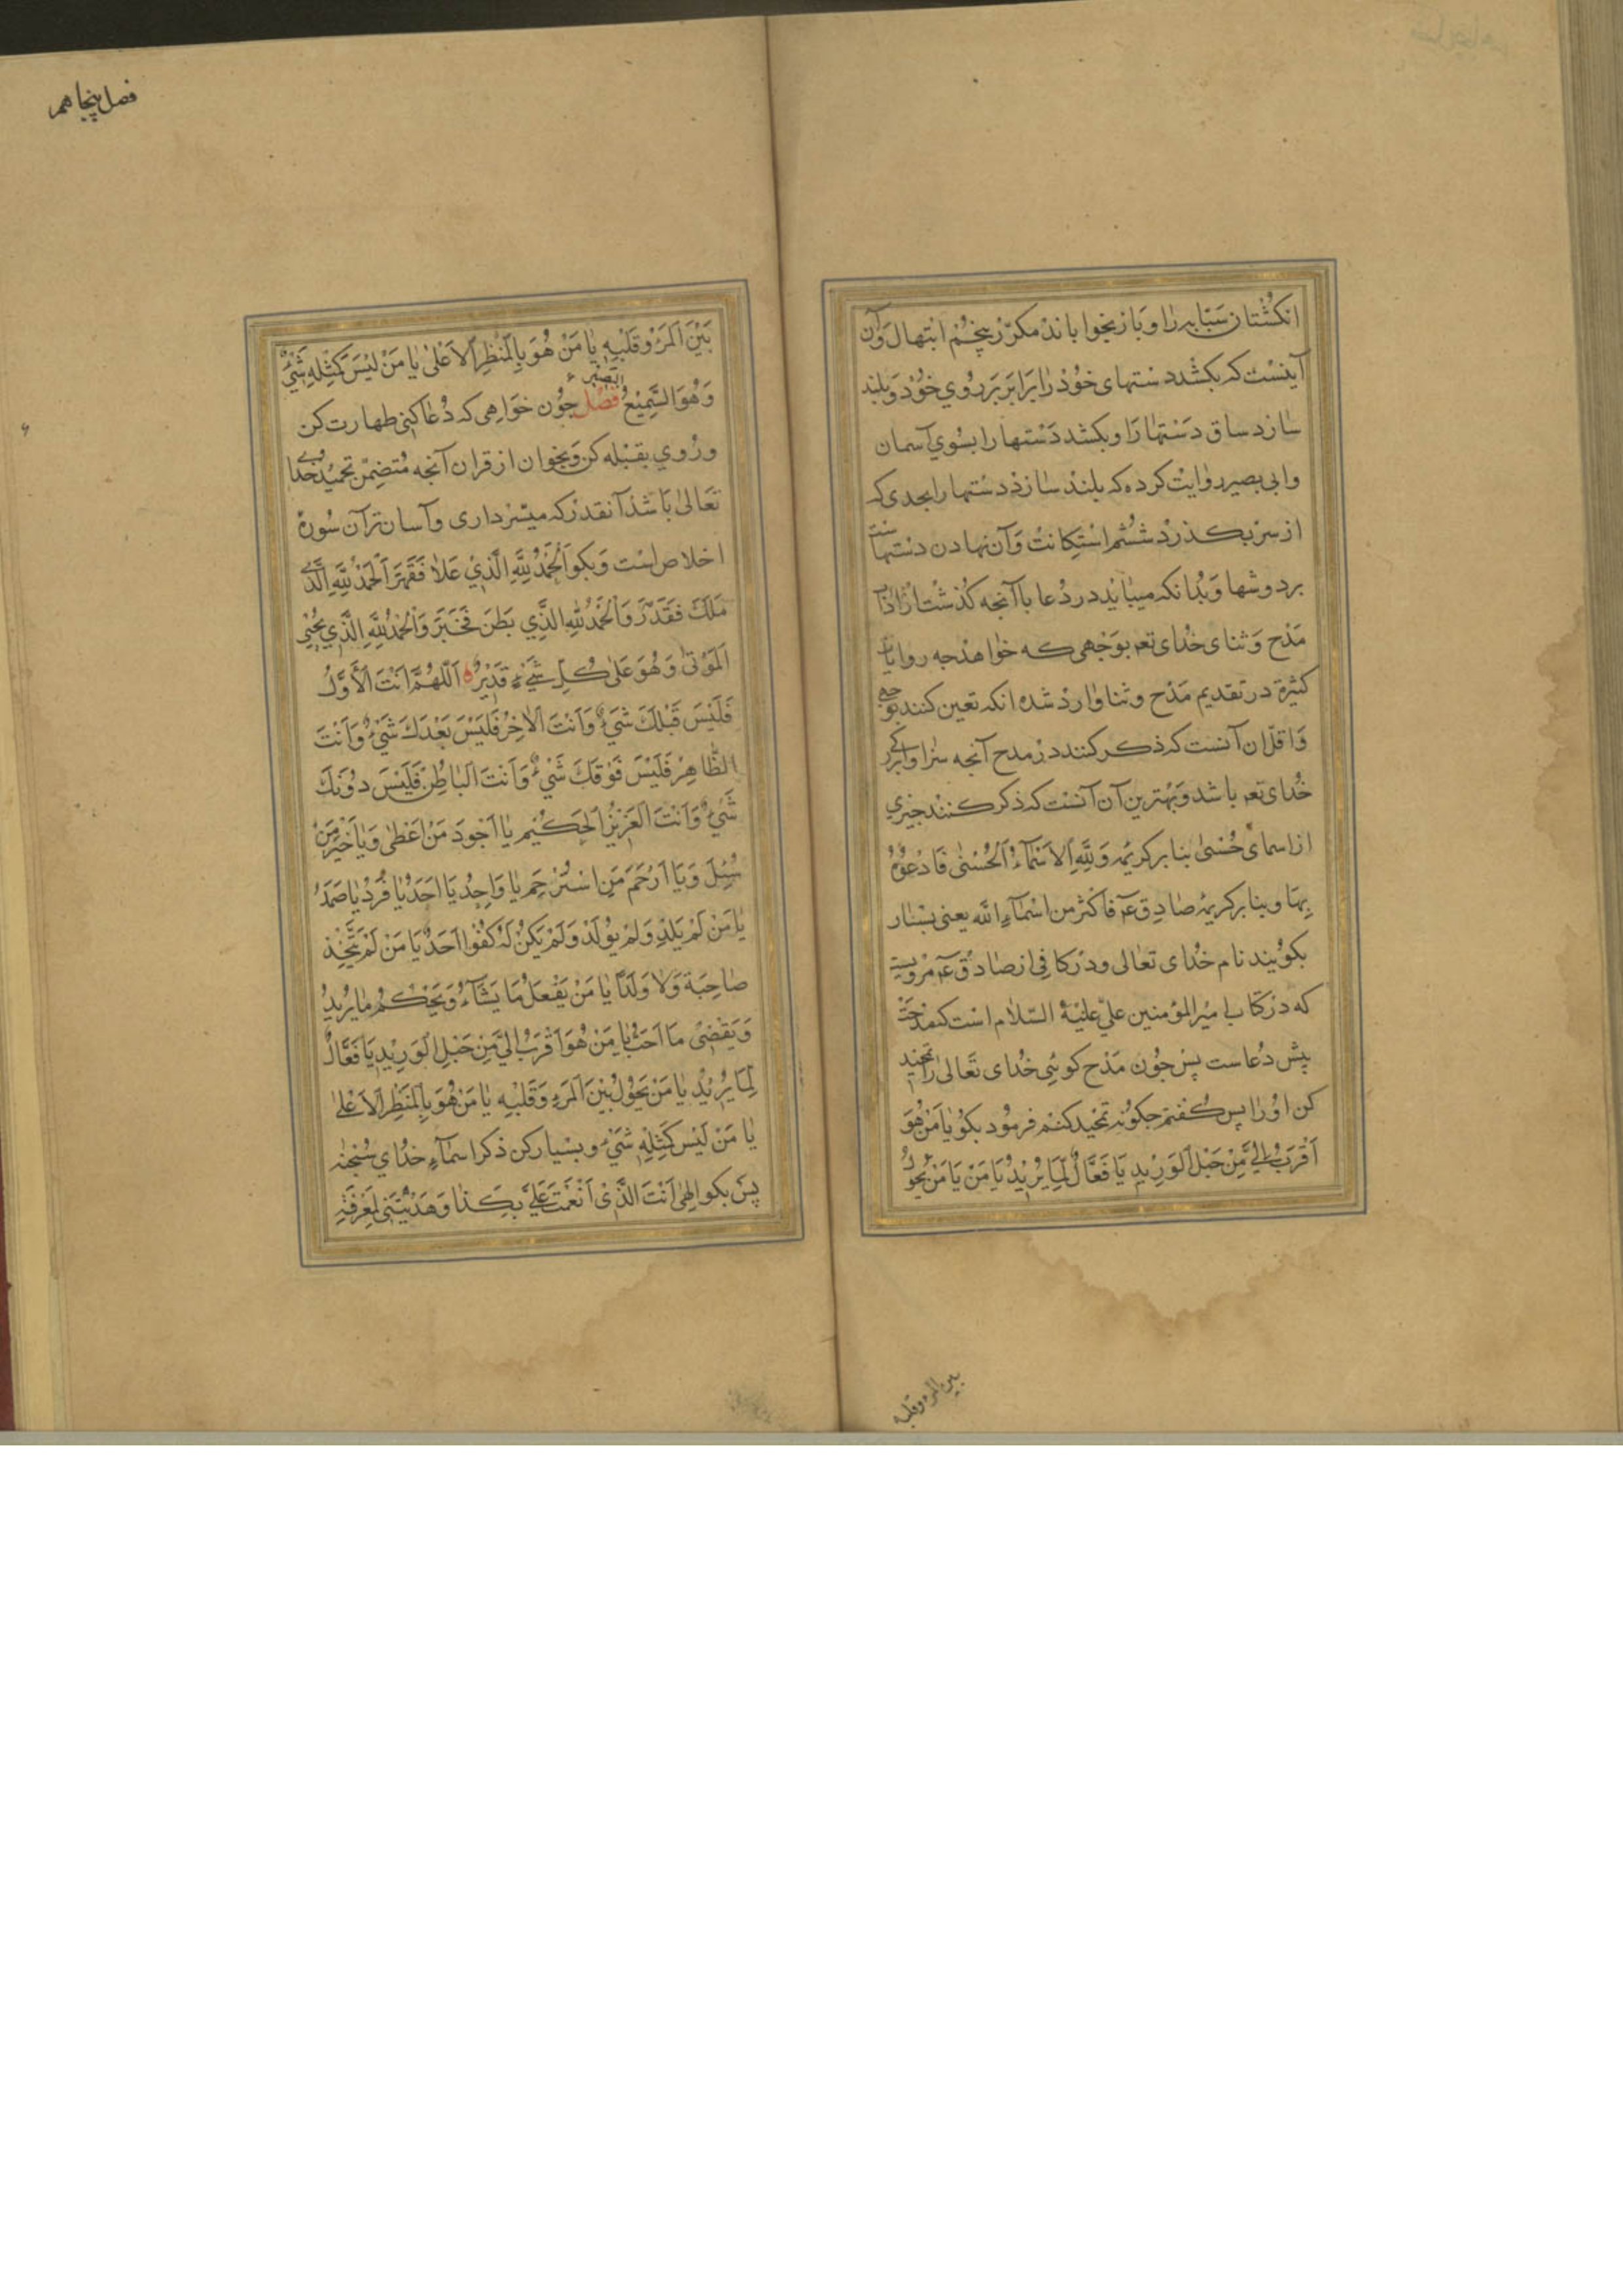 انکشتان سبّابه را و باز بخوا باند مکرّر پنچُم ابتهال وآن
آینست که بکشد دستهای خود را برابر بر روی خود و بلند
سازد ساق دستها را و بکشد دَستها را بسوی آسمان
وابی بصیر روایت کرده که بلند سازد دستها را بحدی که
از سر بکذرد ششم استکانت وآن نهادن دستها ست
بر دوشها وبدانکه میباید در دعا با آنجه کذشت
مَدح وَثنای خدای تعه بوجهی که خواهد جه روایات
کثیرة در تقدیم مَدح و ثنا وارد شده انکه تعین کنند بوجهی
وَاقلّ ان آنست که ذکر کنند در مدح آنجه سزاوار
خدای تعه باشد وبهترین آن آنست که ذکر کنند جیزی
از اسمای حُسنیٰ بنابر کریمه وَلِلّٰهِ الاَسْمَآءُ الْحُسْنٰی فَادْعُوْهُ
بِهَا وبنابر کریمهٔ صادق عۤ فاکثر من اسْمَآءِ الله یعنی بسیار
بکوئیند نام خدای تعالی ودر کافی از صادق عۤ مرویست
که در کتاب امیر المؤمنین علیّ علیْهُ السّلام است که مدحت
پیش دعاست پس جون مَدح کوئی خدای تَعالی را تمجید
کن اورا پس کفتم جکونه تمجید کنم فرمود بکو یَا مَنْ هُوَ
اَقْرَبُ اِلَیَّ مِنْ حَبْلِ الْوَرِیْدِ یَا فَعَّالُ لِمَا یُرِیْدُ یَا مَنْ یَا مَنْ یَحُوْلُ
بین المرء وقلبه
فصل پنجاهم
بَیْنَ الْمَرْءِ وَ قَلْبِهٖ یَا مَنْ هُوَ بِالْمَنْظَرِ الْاَعْلٰی یَا مَنْ لَیْسَ کَمِثْلِهِ شَیْءٌ
وَهُوَ السَّمِیْعُ البَصیر فصل جون خواهی که دُعا کنی طهارت کن
وروی بقبله کن وبخوان از قران آنجه متضمّن تحمید خدای
تَعَالٰی باشد آنقدر که میسّر داری وآسان تر آن سُورهٔ
اخلاص است وَبکو اَلْحَمْدُ لِلّٰهِ الَّذِیْ عَلاٰ فَقَهَرَ اَلْحَمْدُ لِلّٰهِ الَّذِی
مَلَکَ فَقَدَّرَ وَالْحَمْدُ لِلّٰهِ الَّذِی بَطَنَ فَخَبَرَ وَالْحَمْدُ لِلّٰهِ الَّذِی یُحْیِی
الْمَوْتٰی وَهُوَ عَلٰی کُلِّ شَیْءٍ قَدِیْرٌ اَللّٰهُمَّ اَنْتَ الْاَوَّلُ
فَلَیْسَ قَبْلَکَ شَیْءٌ وَاَنْتَ الْاٰخِرُ فَلَیْسَ بَعْدَکَ شَیْءٌ وَاَنْتَ
الظَّاهِرُ فَلَیْسَ فَوْقَکَ شَیْءٌ وَاَنْتَ الْبَاطِنُ فَلَیْسَ دُوْنَکَ
شَیْءٌ وَاَنْتَ الْعَزِیْزُ الْحَکِیْمُ یَا اَجْوَدَ مَنْ اَعْطٰی وَیَا خَیْرَ مَنْ
سُئِلَ وَیَا اَرْحَمَ مَنِ اسْتُرْحِمَ یَا وَاحِدُ یَا اَحَدُ یَا فَرْدُ یَا صَمَدُ
یَا مَنْ لَمْ یَلِدْ وَلَمْ یُوْلَدْ وَلَمْ یَکُنْ لَهُ کُفُوًا اَحَدٌ یَا مَنْ لَمْ یَتَّخِذْ
صَاحِبَةً وَلَا وَلَدًا یَا مَنْ یَفْعَلُ مَا یَشَآءُ وَیَحْکُمُ مَا یُرِیدُ
وَیَقْضِیْ مَا اَحَبَّ یَا مَنْ هُوَ اَقْرَبُ اِلَیَّ مِنْ حَبْلِ الْوَرِیْدِ یَا فَعَّالُ
لِمَا یُرِیْدُ یَا مَنْ یَحُوْلُ بَیْنَ الْمَرْءِ وَقَلْبِهِ یَا مَنْ هُوَ بِالْمَنْظَرِ الْاَعْلٰی
یَا مَنْ لَیْسَ کَمِثْلِهِ شَیْءٌ وبسیار کن ذکر اسمآءِ خدای
پس بکو اِلٰهِی اَنْتَ الَّذِیْ اَنْعَمْتَ عَلَیَّ بِکَذَا وَهَدَیْتَنِیْ لِمَعْرِفَةِ